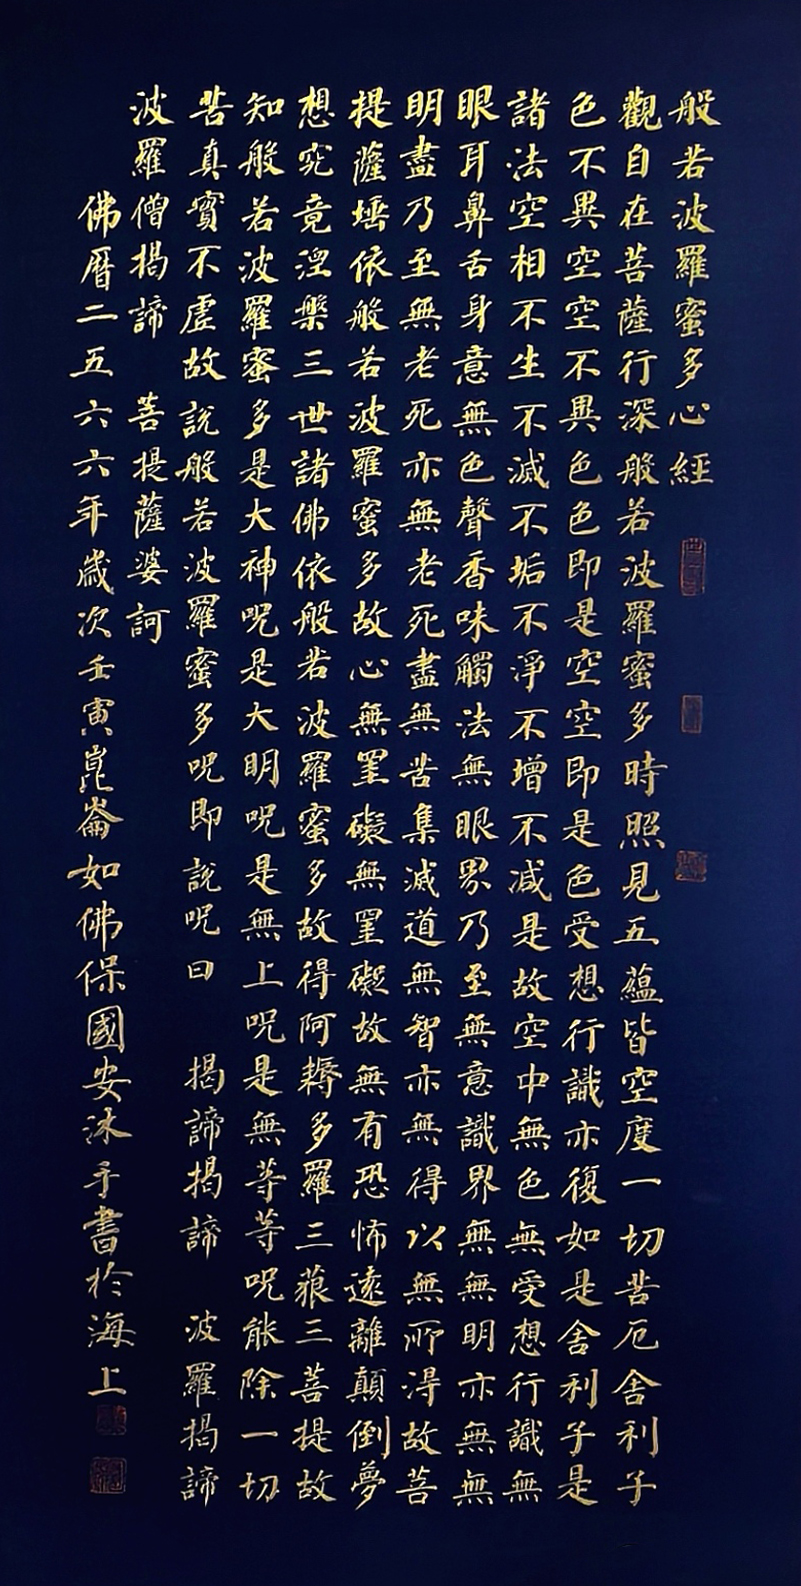 般若波羅蜜多心經
觀自在菩薩行深般若波羅蜜多時照見五蘊皆空度一切苦厄舍利子
色不異空空不異色色即是空空即是色受想行識亦復如是舍利子是
諸法空相不生不滅不垢不淨不增不減是故空中無色無受想行識無
眼耳鼻舌身意無色聲香味觸法無眼界乃至無意識界無無明亦無無
明盡乃至無老死亦無老死盡無苦集滅道無智亦無得以無所得故菩
提薩埵依般若波羅蜜多故心無罣礙無罣礙故無有恐怖遠離顛倒夢
想究竟涅槃三世諸佛依般若波羅蜜多故得阿耨多羅三藐三菩提故
知般若波羅蜜多是大神呪是大明呪是無上呪是無等等呪能除一切
苦真實不虛故說般若波羅蜜多呪即說呪曰 揭諦揭諦 波羅揭諦
波羅僧揭諦 菩提薩婆訶
佛曆二五六六年歲次壬寅崑崙如佛保國安沐手書於海上